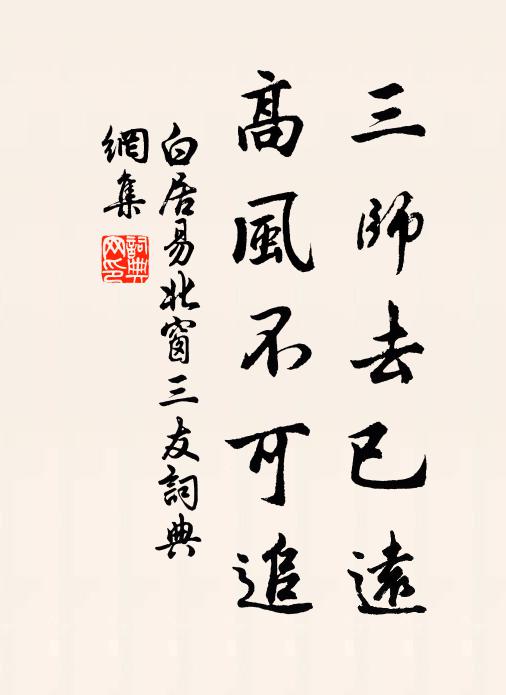 三師去已遠
高風不可追
白居易北窗三友詞典
網集
詞典網印